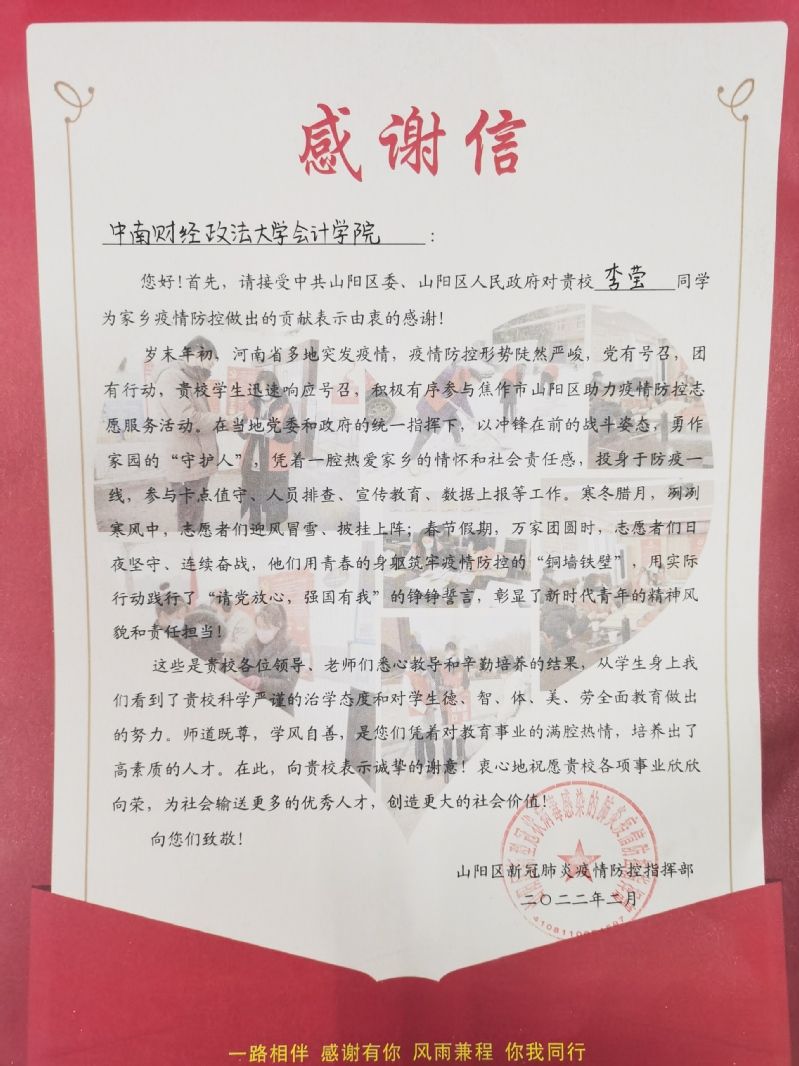 感谢信
中南财经政法大学会计学院：
您好！首先，请接受中共山阳区委、山阳区人民政府对贵校李莹同学
为家乡疫情防控做出的贡献表示由衷的感谢！
岁末年初、河南省多地突发疫情，疫情防控形势陡然严峻，党有号召，团
有行动，贵校学生迅速响应号召，积极有序参与焦作市山阳区助力疫情防控志
愿服务活动。在当地党委和政府的统一指挥下，以冲锋在前的战斗姿态，勇作
家园的“守护人”，凭着一腔热爱家乡的情怀和社会责任感，投身于防疫一
线，参与卡点值守、人员排查、宣传教育、数据上报等工作。寒冬腊月，冽冽
寒风中，志愿者们迎风冒雪、披挂上阵；春节假期，万家团圆时，志愿者们日
夜坚守、连续奋战，他们用青春的身躯筑牢疫情防控的“铜墙铁壁”，用实际
行动践行了“请党放心，强国有我”的铮铮誓言，彰显了新时代青年的精神风
貌和责任担当！
这些是贵校各位领导、老师们悉心教导和辛勤培养的结果，从学生身上我
们看到了贵校科学严谨的治学态度和对学生德、智、体、美、劳全面教育做出
的努力。师道既尊，学风自善，是您们凭着对教育事业的满腔热情，培养出了
高素质的人才。在此，向贵校表示诚挚的谢意！衷心地祝愿贵校各项事业欣欣
向荣，为社会输送更多的优秀人才，创造更大的社会价值！
向您们致敬！
山阳区新冠肺炎疫情防控指挥部
二〇二二年二月
一路相伴 感谢有你 风雨兼程 你我同行